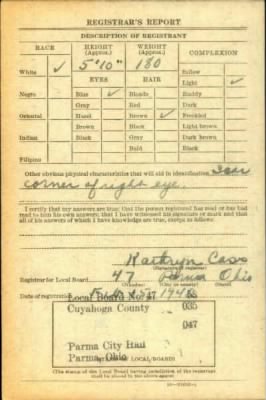 REGISTRAR'S REPORT
DESCRIPTION OF REGISTRANT
RACE HEIGHT (Approx.) WEIGHT (Approx.) COMPLEXION
5'10" 180
White ✓ Sallow
EYES HAIR Light ✓
Negro Blue ✓ Blonde Ruddy
Gray Red Dark
Oriental Hazel Brown ✓ Freckled
Brown Black Light brown
Indian Black Gray Dark brown
Bald Black
Filipino
Other obvious physical characteristics that will aid in identification Scar
corner of right eye.
I certify that my answers are true; that the person registered has read or has had
read to him his own answers; that I have witnessed his signature or mark and that
all of his answers of which I have knowledge are true, except as follows:
Kathryn Cass
(Signature of registrar)
Registrar for Local Board 47 Parma Ohio
(Number) (City or county) (State)
Date of registration
Local Board No. 47 35
Cuyahoga County 035
047
Parma City Hall
Parma, Ohio
(STAMP OF LOCAL BOARD)
(The stamp of the Local Board having jurisdiction of the registrant
shall be placed in the above space.)